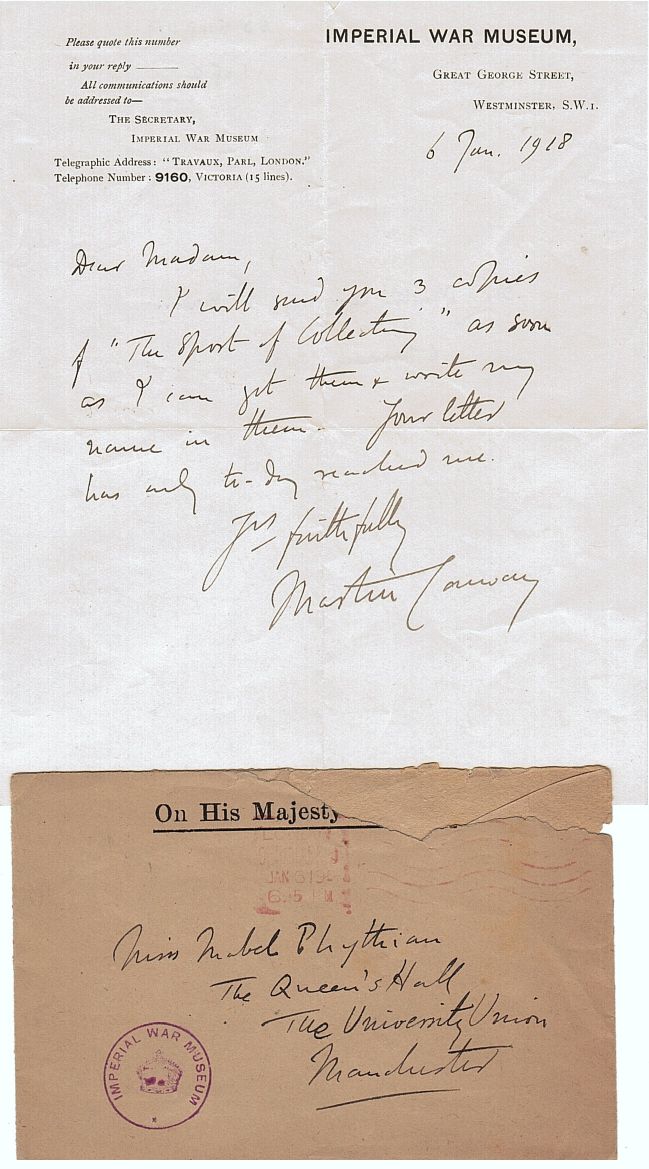 Please quote this number
in your reply
All communications should
be addressed to—
THE SECRETARY,
IMPERIAL WAR MUSEUM
Telegraphic Address: "TRAVAUX, PARL, LONDON."
Telephone Number: 9160, VICTORIA (15 lines).
IMPERIAL WAR MUSEUM,
GREAT GEORGE STREET,
WESTMINSTER, S.W.1.
6 Jan. 1918
Dear Madam,
I will send you 3 copies
of "The Sport of Collecting" as soon
as I can get them & write my
name in them. Your letter
has only to-day reached me.
Yrs faithfully
Martin Conway
On His Majesty
JAN 6 19
6.5 PM
Miss Mabel Phythian
The Queen's Hall
The University Union
Manchester
IMPERIAL WAR MUSEUM